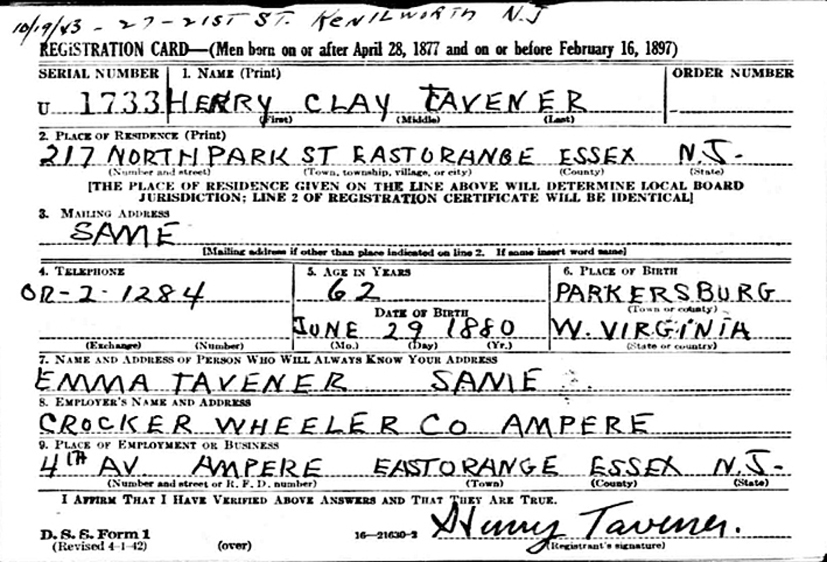 10/19/43 - 27 - 21ST ST. KENILWORTH N.J
REGISTRATION CARD—(Men born on or after April 28, 1877 and on or before February 16, 1897)
SERIAL NUMBER 1. NAME (Print) ORDER NUMBER
U 1733 HENRY CLAY TAVENER
(First) (Middle) (Last)
2. PLACE OF RESIDENCE (Print)
217 NORTH PARK ST EAST ORANGE ESSEX N.J-
(Number and street) (Town, township, village, or city) (County) (State)
[THE PLACE OF RESIDENCE GIVEN ON THE LINE ABOVE WILL DETERMINE LOCAL BOARD
JURISDICTION; LINE 2 OF REGISTRATION CERTIFICATE WILL BE IDENTICAL]
3. MAILING ADDRESS
SAME
[Mailing address if other than place indicated on line 2. If same insert word same]
4. TELEPHONE 5. AGE IN YEARS 6. PLACE OF BIRTH
OR-2-1284 62 PARKERSBURG
DATE OF BIRTH (Town or county)
JUNE 29 1880 W. VIRGINIA
(Exchange) (Number) (Mo.) (Day) (Yr.) (State or country)
7. NAME AND ADDRESS OF PERSON WHO WILL ALWAYS KNOW YOUR ADDRESS
EMMA TAVENER SAME
8. EMPLOYER'S NAME AND ADDRESS
CROCKER WHEELER CO AMPERE
9. PLACE OF EMPLOYMENT OR BUSINESS
4TH AV AMPERE EAST ORANGE ESSEX N.J-
(Number and street or R. F. D. number) (Town) (County) (State)
I AFFIRM THAT I HAVE VERIFIED ABOVE ANSWERS AND THAT THEY ARE TRUE.
D. S. S. Form 1 16—21630-2 Henry Tavener.
(Revised 4-1-42) (over) (Registrant's signature)